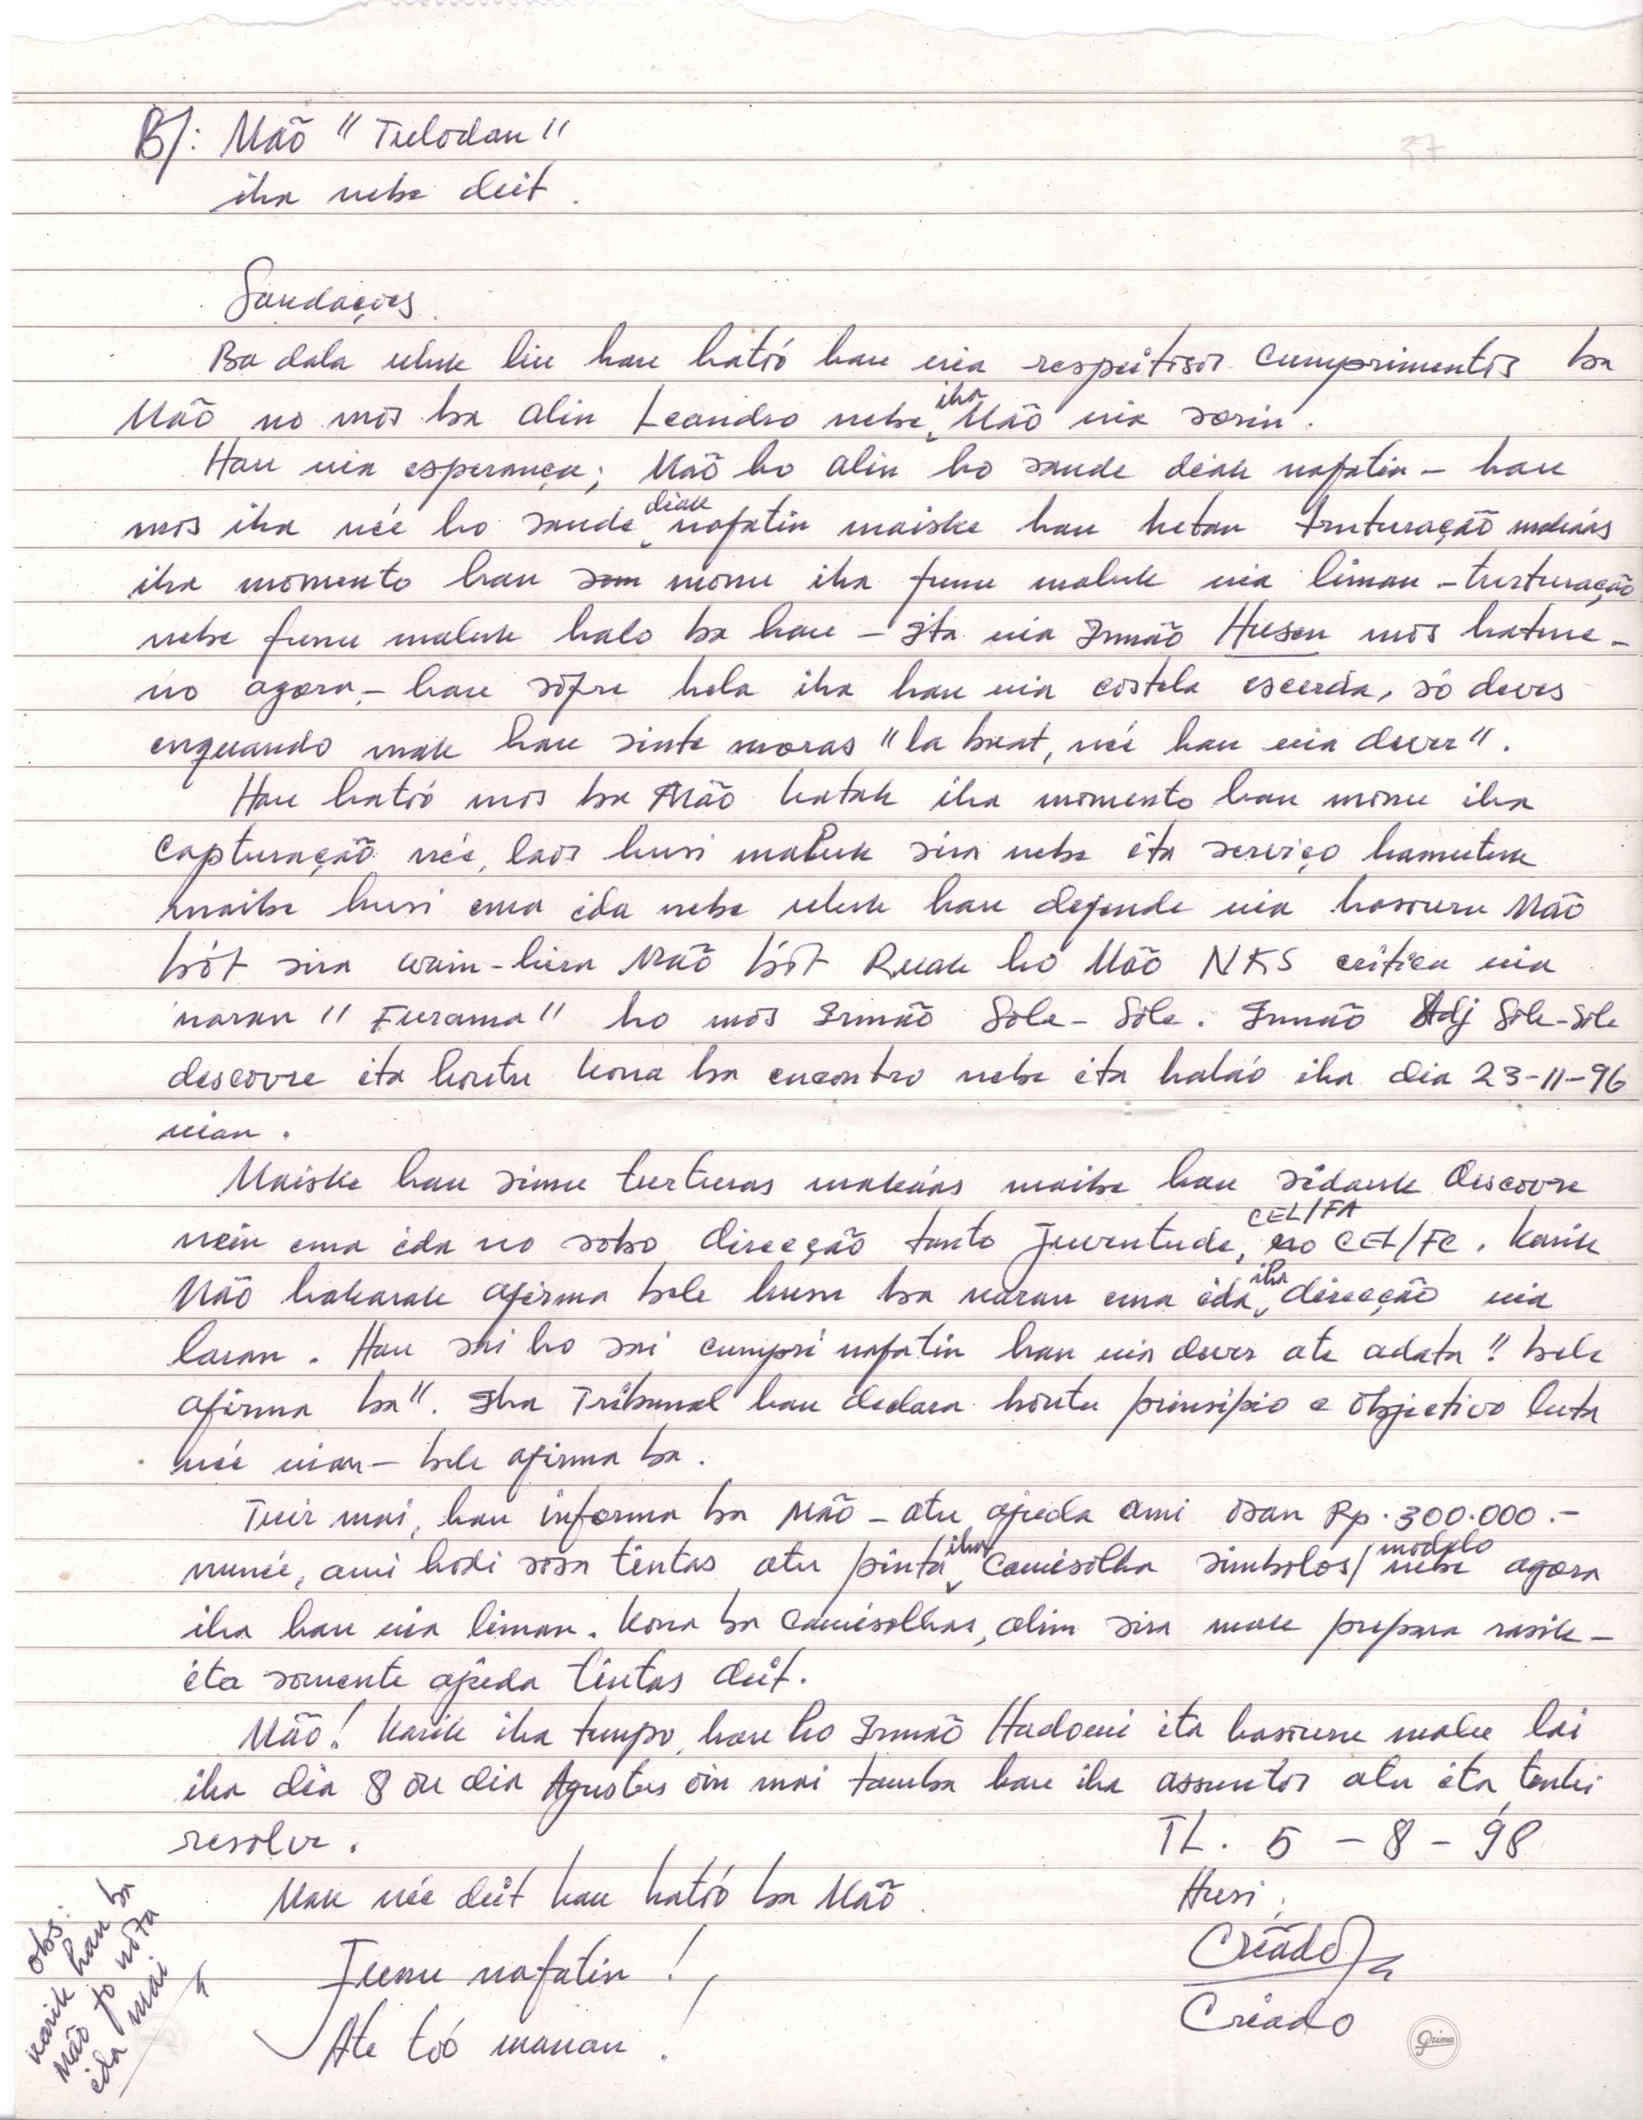 B/: Mão "Tulodan"
iha nebe deit.
37
Saudações.
Ba dala uluk liu hau hatió hau nia respeitosos cumprimentos ba
Mão no mos ba alin Leandro nebe iha Mão nia sorin.
Hau nia esperança; Mão ho alin ho saude diak nafatin - hau
mos iha neé ho saude diak nafatin maiske hau hetan truturação makáas
iha momento hau monu iha funu maluk nia liman - turturação
nebe funu maluk halo ba hau - Ita nia Irmão Husen mos hatene -
no agora - hau sofre hela iha hau nia costela escerda, só deves
enquando mak hau sinte moras "la buat, neé hau nia dever".
Hau hatió mos ba Mão katak iha momento hau monu iha
capturação neé, laos husi maluk sira nebe ita serviço hamutuk
maibe husi ema ida nebe uluk hau defende nia hasouru Mão
bót sira wain-hira Mão bót Ruak ho Mão NKS critica nia
naran "Furama" ho mos Irmão Sole-Sole. Irmão Adj Sole-Sole
descovre ita houtu kona ba encontro nebe ita haláo iha dia 23-11-96
nian.
Maiske hau simu turturas makáas maibe hau sidauk descovre
nein ema ida no sobo direcção tanto Juventude, CEL/FA no CEL/FC. Karik
Mão hakarak afirma bele husu ba naran ema ida iha direcção nia
laran. Hau sai ho sai cumpri nafatin hau nia dever ate adata "bele
afirma ba". Iha Tribunal hau declara houtu prinsipio e objectivo luta
neé nian - bele afirma ba.
Tuir mai, hau informa ba Mão - atu ajuda ami osan Rp. 300.000.-
nuneé, ami hodi sosa tintas atu pinta iha camisolha simbolos/modelo nebe agora
iha hau nia liman. Kona ba camisolhas, alin sira mak prepara rasik -
ita somente ajuda tintas deit.
Mão! Karik iha tempo, hau ho Irmão Hadomi ita hasouru malu lai
iha dia 8 ou dia Agustus oin mai tamba hau iha assuntos atu ita tenki
resolve.
TL. 5-8-98
Mak neé deit hau hatió ba Mão.
Husi,
Criado
Funu nafatin!,
Criado
Ate toó manan!
obs:
karik hau ba
Mão fo nota
ida mai
grima